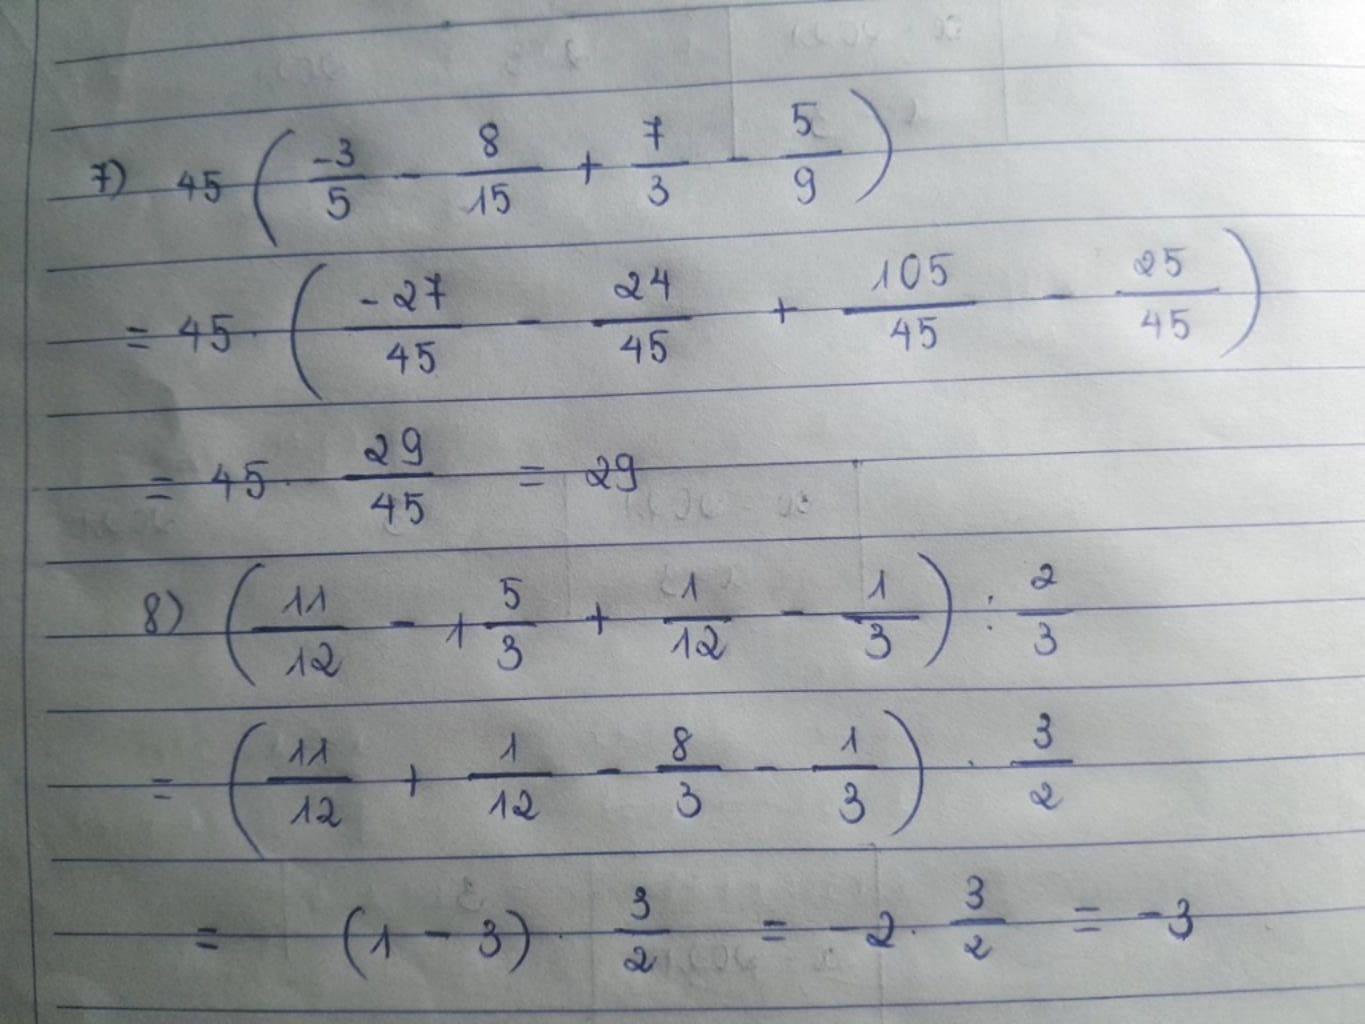 7) 45 ( -3/5 - 8/15 + 7/3 - 5/9 )
= 45 · ( -27/45 - 24/45 + 105/45 - 25/45 )
= 45 · 29/45 = 29
8) ( 11/12 - 1 5/3 + 1/12 - 1/3 ) : 2/3
= ( 11/12 + 1/12 - 8/3 - 1/3 ) · 3/2
= (1 - 3) · 3/2 = -2 · 3/2 = -3